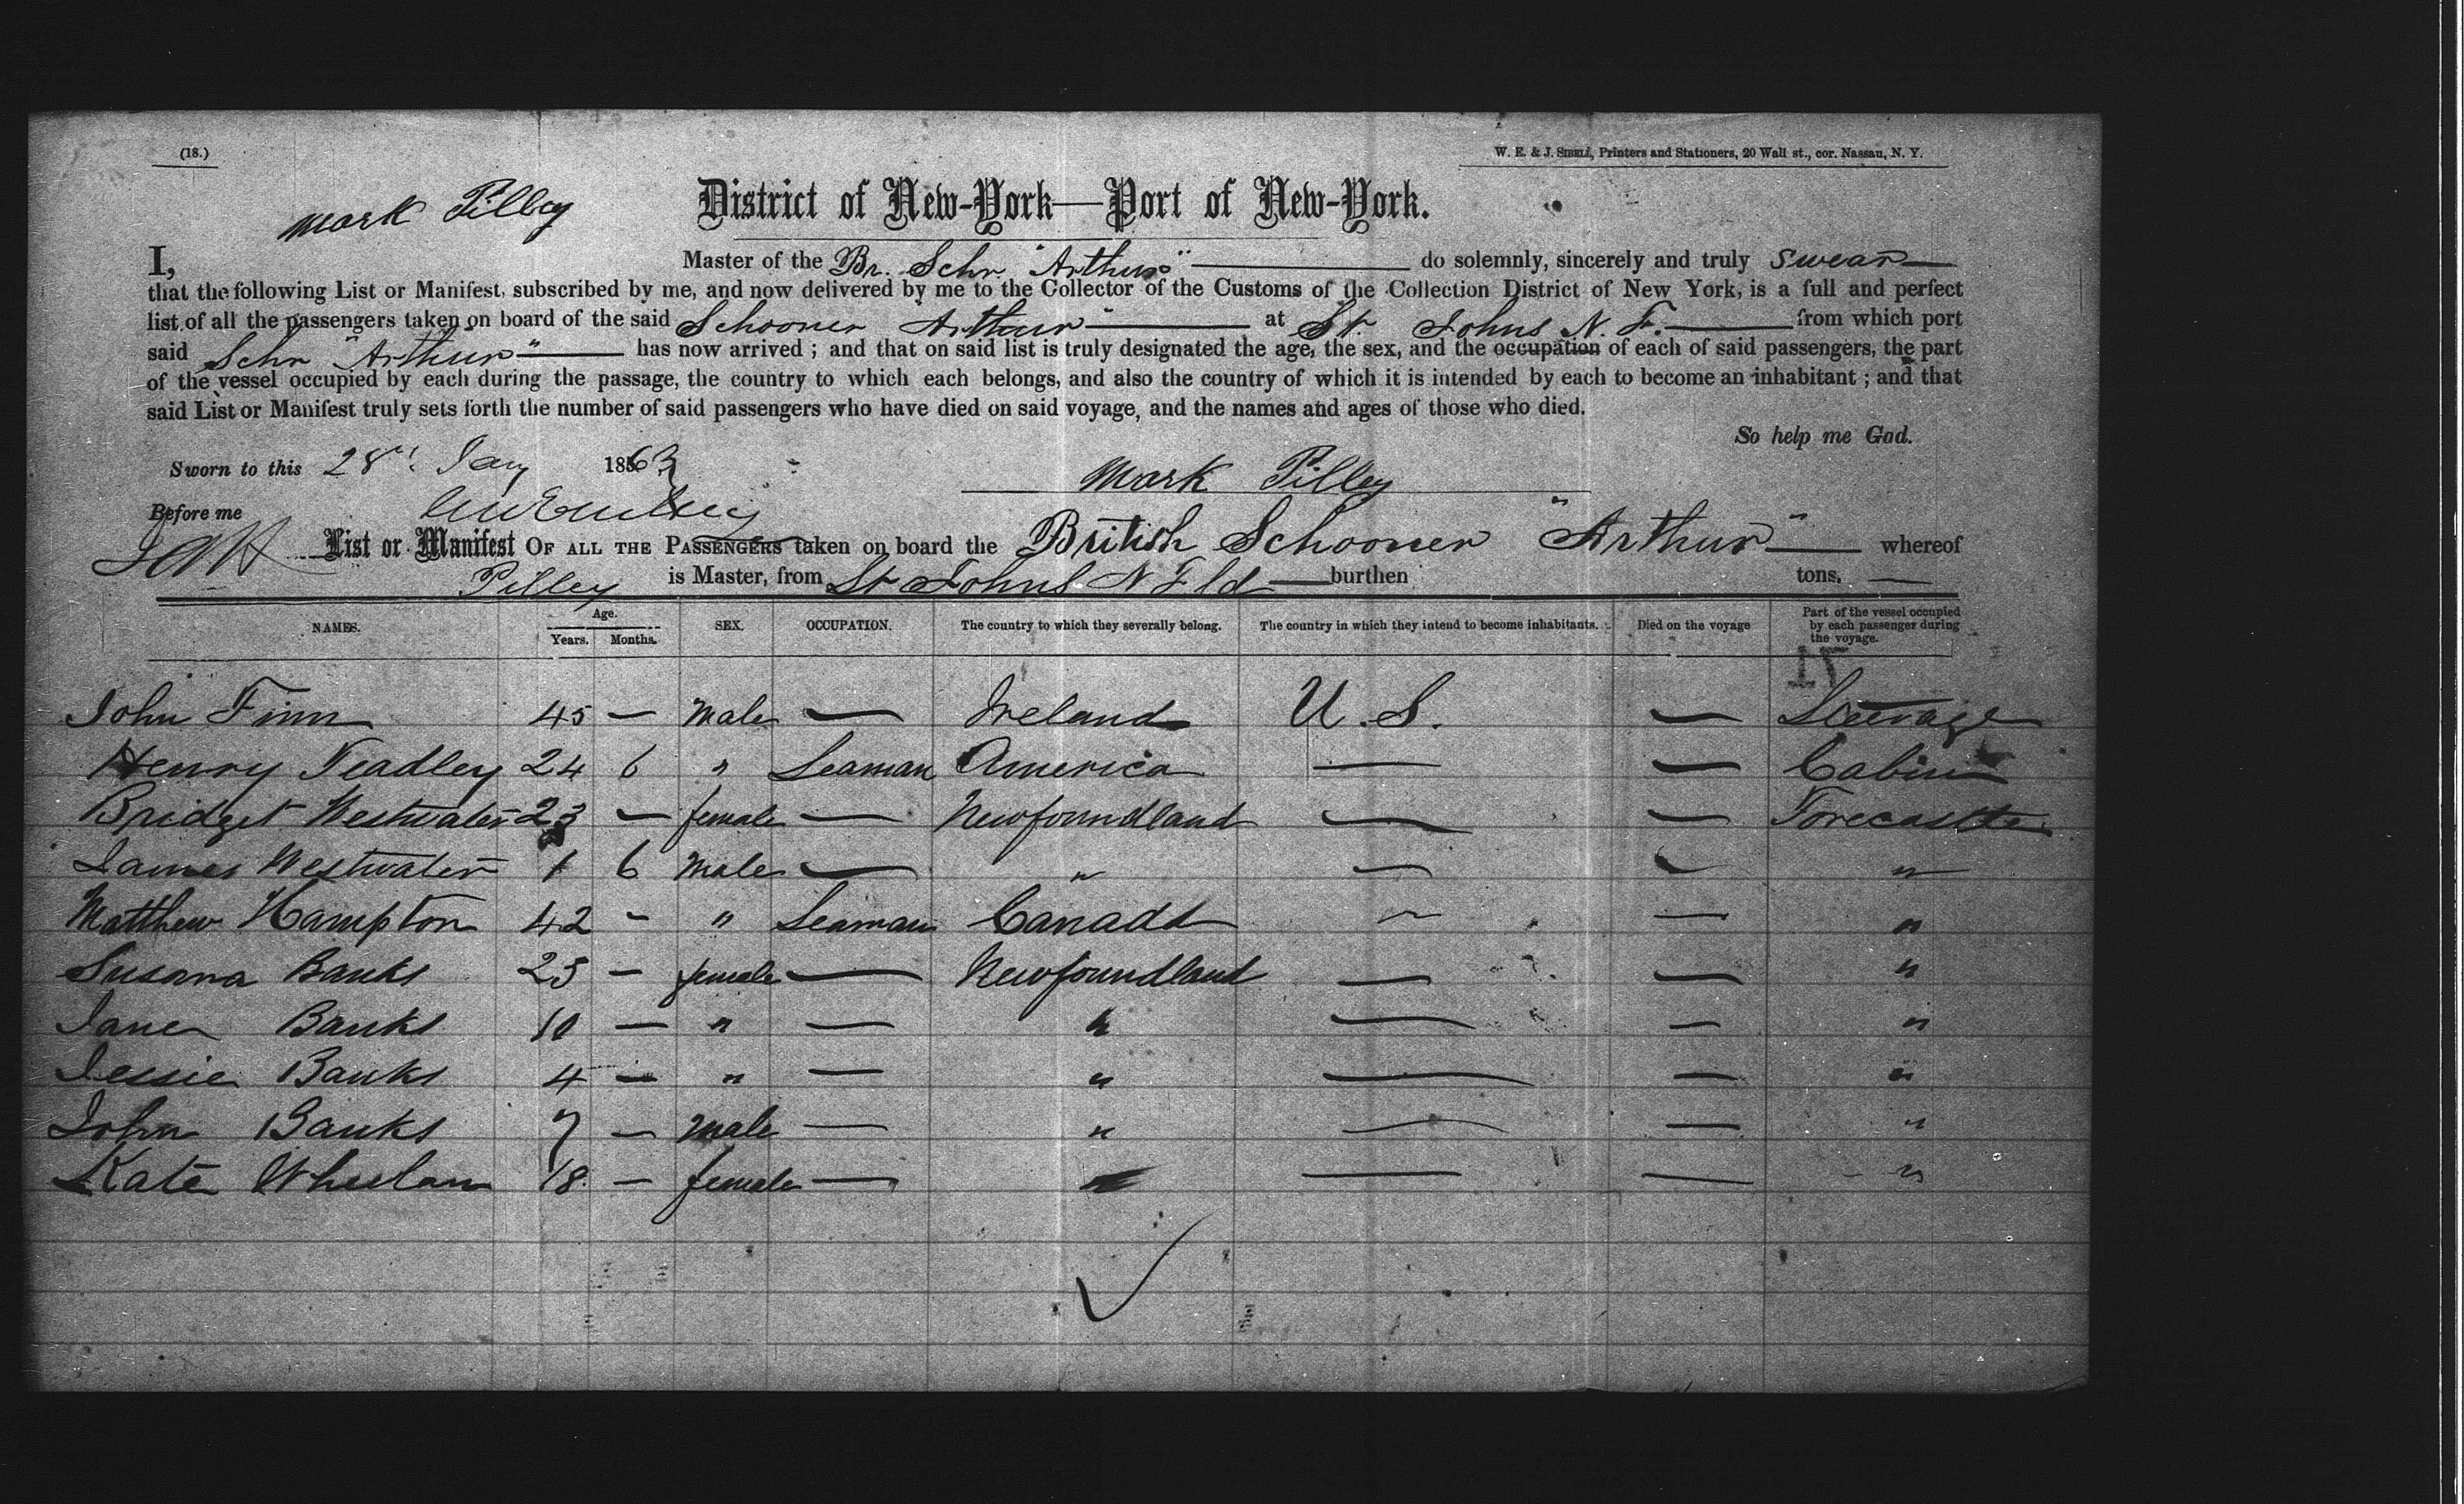 (18.)
W. E. & J. SIBELL, Printers and Stationers, 20 Wall st., cor. Nassau, N. Y.
District of New-York—Port of New-York.
I, Mark Pilley Master of the Br. Schr "Arthur" do solemnly, sincerely and truly swear
that the following List or Manifest, subscribed by me, and now delivered by me to the Collector of the Customs of the Collection District of New York, is a full and perfect
list of all the passengers taken on board of the said Schooner Arthur at St. Johns N. F. from which port
said Schr "Arthur" has now arrived ; and that on said list is truly designated the age, the sex, and the occupation of each of said passengers, the part
of the vessel occupied by each during the passage, the country to which each belongs, and also the country of which it is intended by each to become an inhabitant ; and that
said List or Manifest truly sets forth the number of said passengers who have died on said voyage, and the names and ages of those who died.
So help me God.
Sworn to this 28th Jany 1863
Mark Pilley
Before me
List or Manifest OF ALL THE PASSENGERS taken on board the British Schooner "Arthur" whereof
Pilley is Master, from St Johns N Fld burthen tons.
NAMES. Age. Years. Months. SEX. OCCUPATION. The country to which they severally belong. The country in which they intend to become inhabitants. Died on the voyage Part of the vessel occupied by each passenger during the voyage.
John Finn 45 — Male — Ireland U. S. — Steerage
Henry Neadley 24 6 " Seaman America — — Cabin
Bridget Westwater 23 — female — Newfoundland — — Forecastle
James Westwater 1 6 Male — " — — "
Matthew Hampton 42 - " Seaman Canada — — "
Susana Banks 25 — female — Newfoundland — — "
Jane Banks 10 — " — " — — "
Jessie Banks 4 — " — " — — "
John Banks 7 — Male — " — — "
Kate Wheelan 18 — female — " — — "